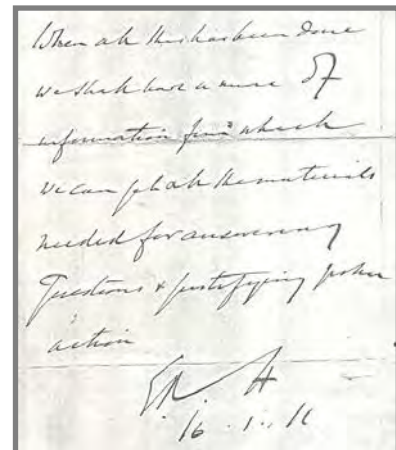 When all this has been done
we shall have a mine of
information from which
we can get all the materials
needed for answering
Questions & justifying police
action
E.R.H
16.1.11